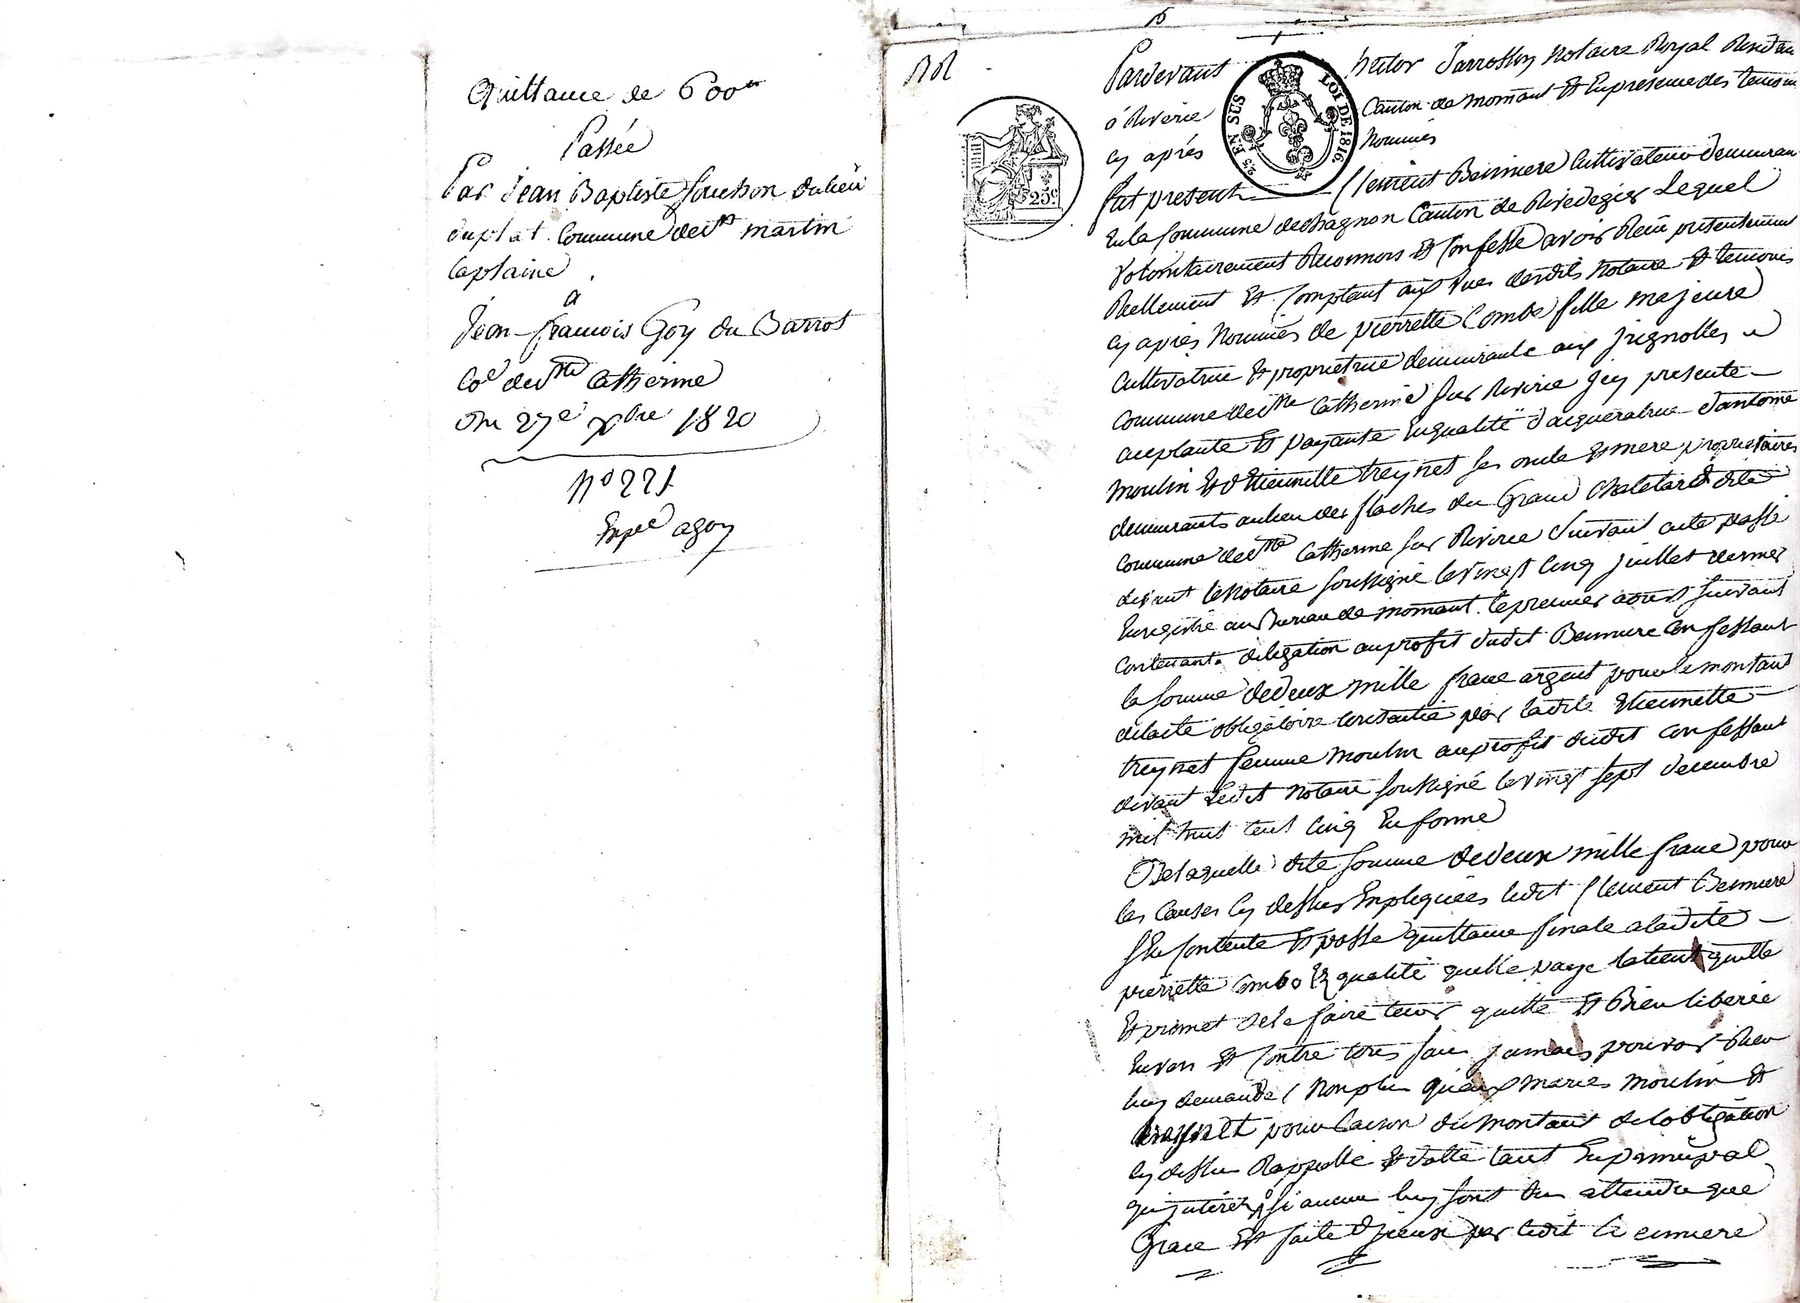 Quittance de 600#
Passée
Par Jean Baptiste Souchon du lieu
duplat Commune de st martin
laplaine
a
Jean-françois Goy du Barrot
Coe de ste Catherine
Du 27e Xbre 1820
No 221
Expe a goy
Pardevant hector Jarrossон notaire Royal Resident
a Riverie Canton de mornant Et En presence des temoins
cy après Nommés
fut present Clement Berniere Cultivateur demeurant
En la Commune de chagnon Canton de Rivedegier Lequel
Volontairement Reconnois et Confesse avoir Reçu presentement
Reellement Et Comptant aux Vues desdits Notaire Et temoins
cy après Nommés de pierrette Combe fille majeure
Cultivatrice Et proprietrice demeurante aux
Commune de ste Catherine sur Riverie Icy presente
aceptante Et payante En qualité d'acqueratrice d'antoine
moulin Et d'Etiennette treynet ses oncle Et mere proprietaires
demeurants au lieu des flaches du Grand Chatelard dite
Commune de ste Catherine sur Riverie Suivant acte passé
devant le Notaire soussigné le vingt Cinq juillet dernier
Enregistré au Bureau de mornant le premier aoust suivant
Contenant delegation au profit dudit Berniere Confessant
la somme de deux mille franc argent pour le montant
de lacte obligatoire Consentie par ladite Etiennette
treynet femme moulin au profit dudit Confessant
devant Ledit Notaire soussigné le vingt sept decembre
mil huit cent Cinq En forme
De laquelle dite somme de deux mille franc pour
les causes cy dessus Expliquées ledit Clement Berniere
s'En Contente Et passe quittance finale a ladite
pierrette Combe Es qualité quelle paye la tient quitte
Et promet de la faire tenir quitte Et Bien liberée
Envers Et Contre tous sans jamais pouvoir Rien
luy demander Non plus qu'aux mariés moulin Et
treynet pour Raison du montant de lobligation
cy dessus Rappellé Et datté tant En principal
qu'interets si aucun luy sont dus attendu que
Grace Est faite d'Iceux par ledit Bernniere
25 EN SUS
LOI DE 1816
25c